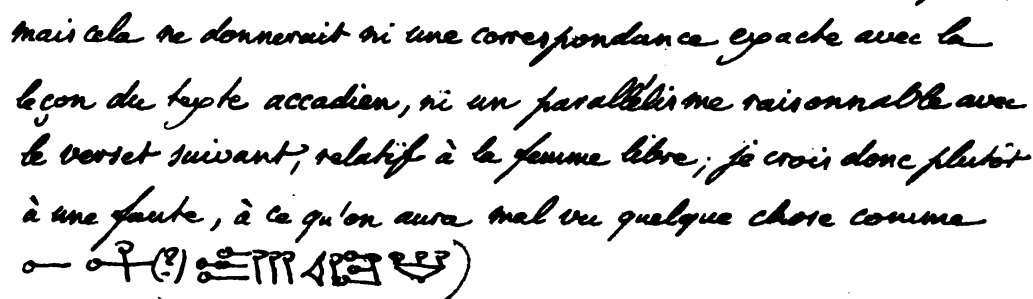 mais cela ne donnerait ni une correspondance exacte avec la
leçon du texte accadien, ni un parallélisme raisonnable avec
le verset suivant, relatif à la femme libre; je crois donc plutôt
à une faute, à ce qu'on aura mal vu quelque chose comme
(?) )